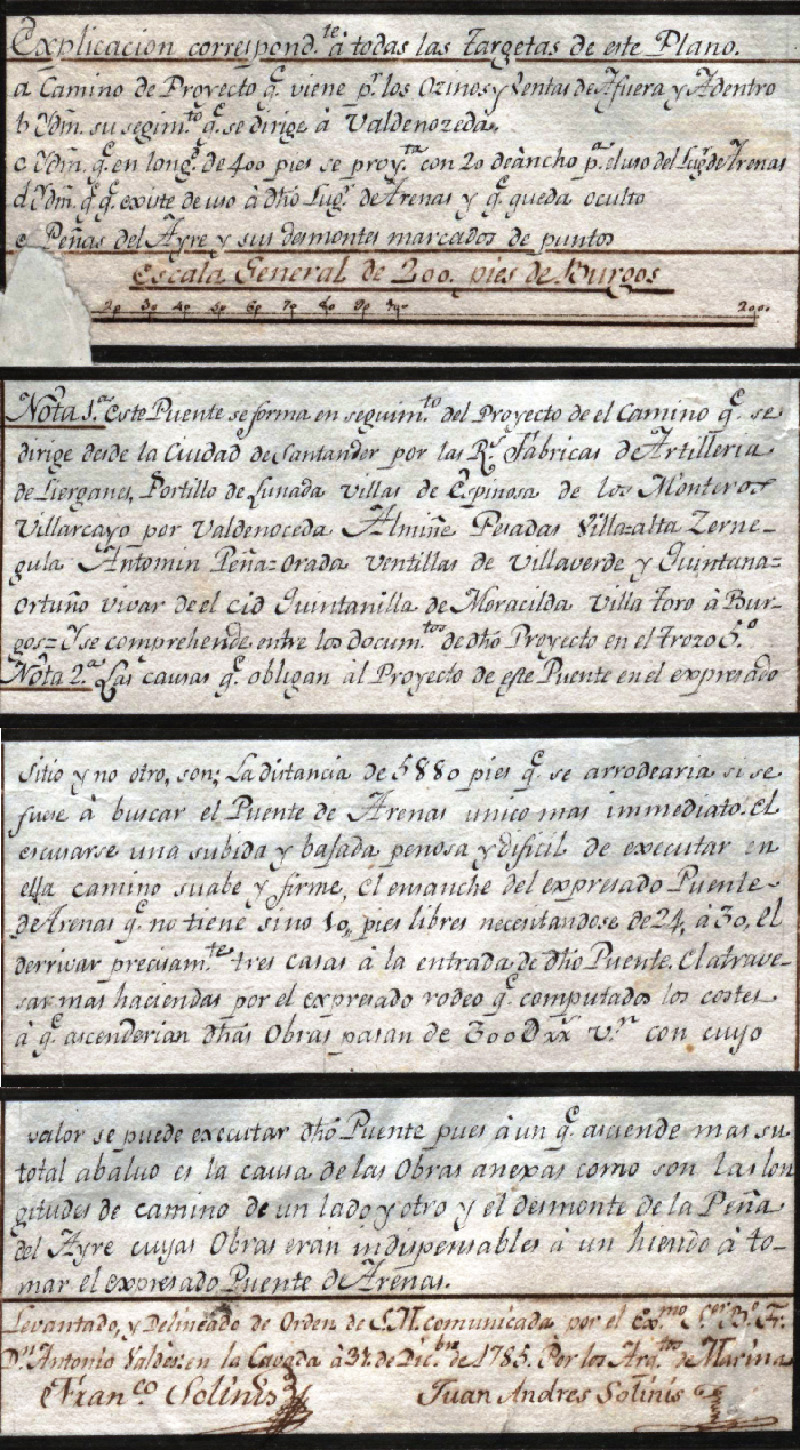 Explicacion correspond.te à todas las targetas de este Plano.
a Camino de Proyecto q.e viene p.r los Ozinos y Ventas de Afuera y Adentro
b Ydm. su segim.to q.e se dirige à Valdenozeda.
c Ydm. q.e en long.d de 400 pies se proy.ta con 20 de àncho p.a el uso del Lug.r de Arenas
d Ydm. q.e existe de uso à dhô Lug.r de Arenas y q.e queda oculto
e Peñas del Ayre y sus desmontes marcados de puntos
Escala General de 200. pies de Burgos
20 30 40 50 60 70 80 90 100 200.
Nota 1.a Este Puente se forma en seguim.to del Proyecto de el Camino q.e se
dirige desde la Ciudad de Santander por las R.s Fábricas de Artilleria
de Lierganes, Portillo de Lunada villas de Espinosa de los Monteros
Villarcayo por Valdenoceda Almiñe Pesadas Villa=alta Zerne-
gula Antomin Peña=Orada ventillas de Villaverde y Quintana=
ortuño vivar de el Cid Quintanilla de Moracilda Villa Toro à Bur-
gos= Y se comprehende entre los docum.tos de dhô Proyecto en el trozo 5.o
Nota 2.a Las causas q.e obligan àl Proyecto de este Puente en el expresado
Sitio y no otro, son; La distancia de 5880 pies q.e se arrodearia si se
fuese à buscar el Puente de Arenas unico mas immediato. El
escusarse una subida y bajada penosa y dificil de executar en
ella camino suabe y firme, El ensanche del expresado Puente
de Arenas q.e no tiene sino 10, pies libres necesitandose de 24, à 30, el
derrivar precisam.te tres casas à la entrada de dhô Puente. El atrave-
sar mas haciendas por el expresado rodeo q.e computados los costes
à q.e ascenderian dhâs Obras pasan de 300D v.n con cuyo
valor se puede executar dhô Puente pues àun q.e asciende mas su
total abaluo es la causa de las Obras anexas como son las lon
gitudes de camino de un lado y otro y el desmonte de la Peña
del Ayre cuyas Obras eran indispensables à un hiendo à to-
mar el expresado Puente de Arenas.
Levantado, y Delineado de Orden de S.M. comunicada por el Ex.mo S.or B.o Fr.
D.n Antonio Valdes: en la Cavada à 31 de Dic.bre de 1785. Por los Arq.tos de Marina
Fran.co Solinis Juan Andres Solinis